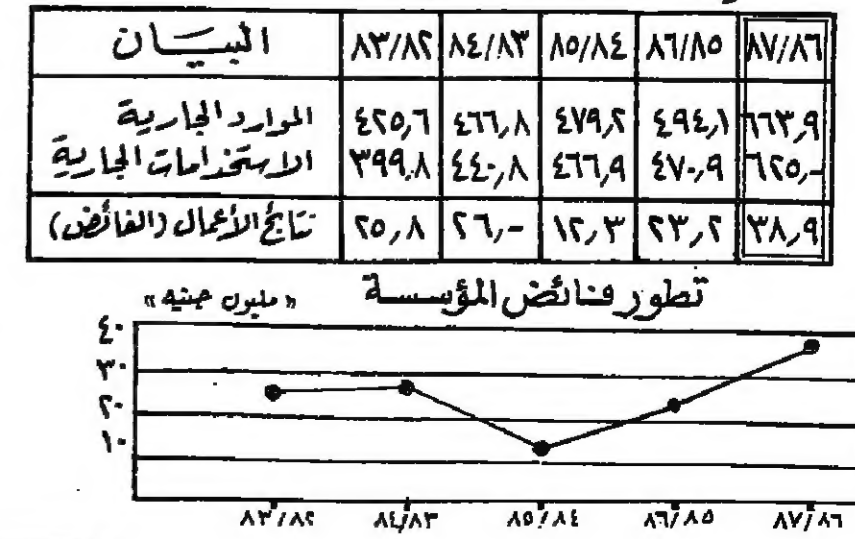 البيان ٨٣/٨٢ ٨٤/٨٣ ٨٥/٨٤ ٨٦/٨٥ ٨٧/٨٦
الموارد الجارية ٤٢٥,٦ ٤٦٦,٨ ٤٧٩,٢ ٤٩٤,١ ٦٦٣,٩
الاستخدامات الجارية ٣٩٩,٨ ٤٤٠,٨ ٤٦٦,٩ ٤٧٠,٩ ٦٢٥,-
نتائج الأعمال (الفائض) ٢٥,٨ ٢٦,- ١٢,٣ ٢٣,٢ ٣٨,٩
تطور فائض المؤسسة «مليون جنيه»
٤٠
٣٠
٢٠
١٠
٨٣/٨٢ ٨٤/٨٣ ٨٥/٨٤ ٨٦/٨٥ ٨٧/٨٦